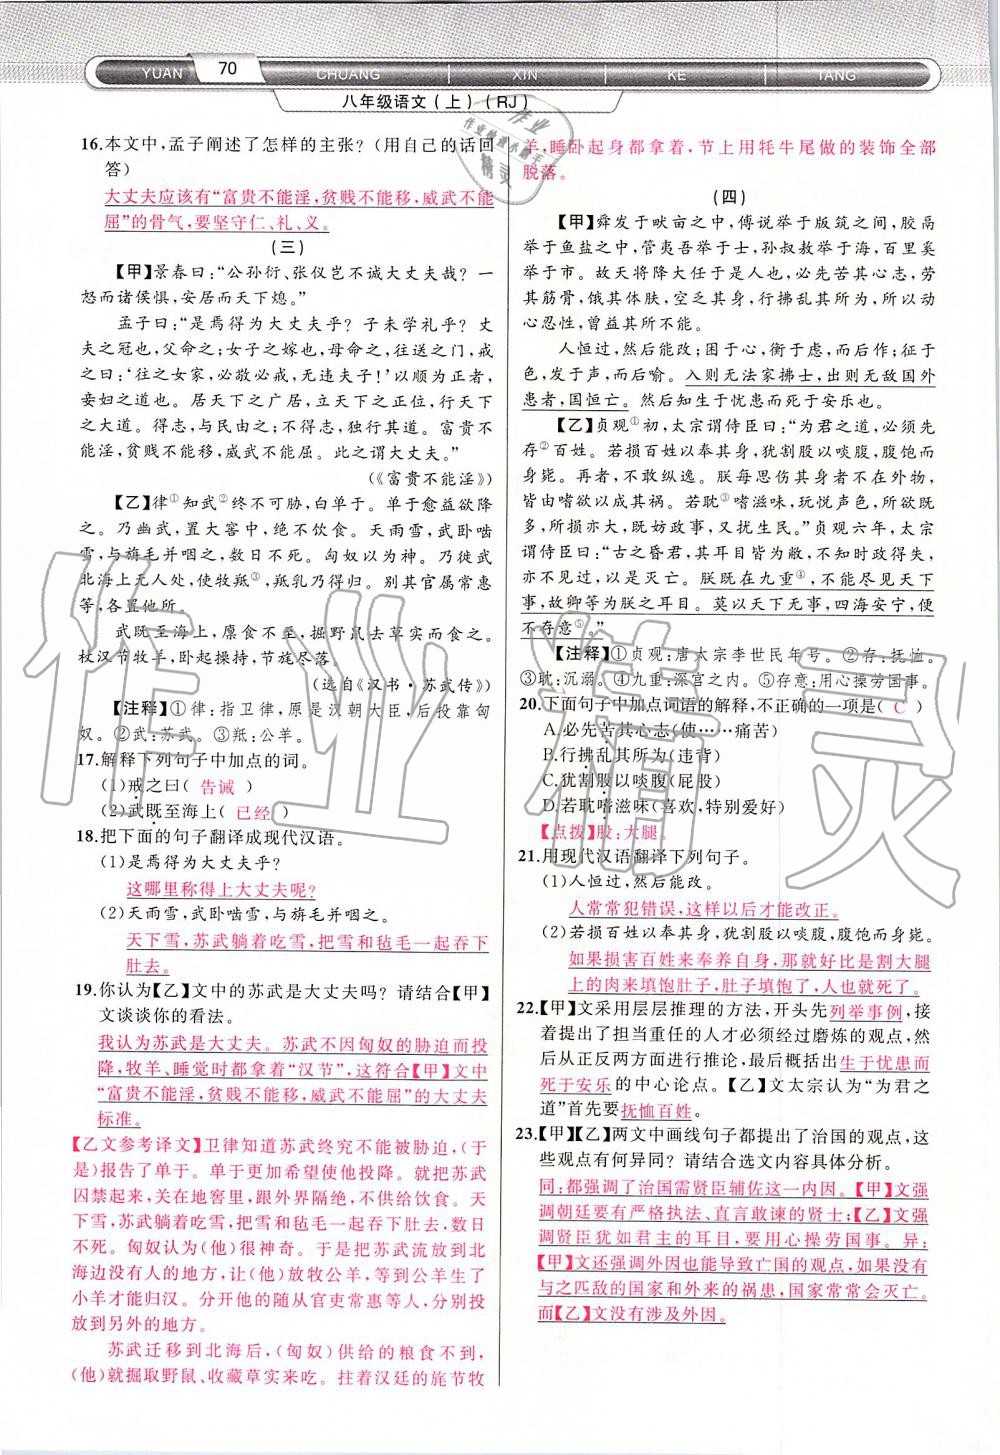 70
YUAN CHUANG XIN KE TANG
八年级语文(上)(RJ)
16.本文中,孟子阐述了怎样的主张?(用自己的话回
答)
大丈夫应该有“富贵不能淫,贫贱不能移,威武不能
屈”的骨气,要坚守仁、礼、义。
(三)
【甲】景春曰:“公孙衍、张仪岂不诚大丈夫哉?一
怒而诸侯惧,安居而天下熄。”
孟子曰:“是焉得为大丈夫乎?子未学礼乎?丈
夫之冠也,父命之;女子之嫁也,母命之,往送之门,戒
之曰:‘往之女家,必敬必戒,无违夫子!’以顺为正者,
妾妇之道也。居天下之广居,立天下之正位,行天下
之大道。得志,与民由之;不得志,独行其道。富贵不
能淫,贫贱不能移,威武不能屈。此之谓大丈夫。”
(《富贵不能淫》)
【乙】律①知武②终不可胁,白单于。单于愈益欲降
之。乃幽武,置大窖中,绝不饮食。天雨雪,武卧啮
雪,与旃毛并咽之,数日不死。匈奴以为神。乃徙武
北海上无人处,使牧羝③,羝乳乃得归。别其官属常惠
等,各置他所。
武既至海上,廪食不至,掘野鼠去草实而食之。
杖汉节牧羊,卧起操持,节旄尽落。
(选自《汉书·苏武传》)
【注释】①律:指卫律,原是汉朝大臣,后投靠匈
奴。②武:苏武。③羝:公羊。
17.解释下列句子中加点的词。
(1)戒之曰( 告诫 )
(2)武既至海上( 已经 )
18.把下面的句子翻译成现代汉语。
(1)是焉得为大丈夫乎?
这哪里称得上大丈夫呢?
(2)天雨雪,武卧啮雪,与旃毛并咽之。
天下雪,苏武躺着吃雪,把雪和毡毛一起吞下
肚去。
19.你认为【乙】文中的苏武是大丈夫吗?请结合【甲】
文谈谈你的看法。
我认为苏武是大丈夫。苏武不因匈奴的胁迫而投
降,牧羊、睡觉时都拿着“汉节”,这符合【甲】文中
“富贵不能淫,贫贱不能移,威武不能屈”的大丈夫
标准。
【乙文参考译文】卫律知道苏武终究不能被胁迫,(于
是)报告了单于。单于更加希望使他投降。就把苏武
囚禁起来,关在地窖里,跟外界隔绝,不供给饮食。天
下雪,苏武躺着吃雪,把雪和毡毛一起吞下肚去,数日
不死。匈奴认为(他)很神奇。于是把苏武流放到北
海边没有人的地方,让(他)放牧公羊,等到公羊生了
小羊才能归汉。分开他的随从官吏常惠等人,分别投
放到另外的地方。
苏武迁移到北海后,(匈奴)供给的粮食不到,
(他)就掘取野鼠、收藏草实来吃。拄着汉廷的旄节牧
羊,睡卧起身都拿着,节上用牦牛尾做的装饰全部
脱落。
(四)
【甲】舜发于畎亩之中,傅说举于版筑之间,胶鬲
举于鱼盐之中,管夷吾举于士,孙叔敖举于海,百里奚
举于市。故天将降大任于是人也,必先苦其心志,劳
其筋骨,饿其体肤,空乏其身,行拂乱其所为,所以动
心忍性,曾益其所不能。
人恒过,然后能改;困于心,衡于虑,而后作;征于
色,发于声,而后喻。入则无法家拂士,出则无敌国外
患者,国恒亡。然后知生于忧患而死于安乐也。
【乙】贞观①初,太宗谓侍臣曰:“为君之道,必须先
存②百姓。若损百姓以奉其身,犹割股以啖腹,腹饱而
身毙。再者,不敢纵逸。朕每思伤其身者不在外物,
皆由嗜欲以成其祸。若耽③嗜滋味,玩悦声色,所欲既
多,所损亦大,既妨政事,又扰生民。”贞观六年,太宗
谓侍臣曰:“古之昏君,其耳目皆为敝,不知时政得失,
亦不见过,是以灭亡。朕既在九重④,不能尽见天下
事,故卿等为朕之耳目。莫以天下无事,四海安宁,便
不存意⑤。”
【注释】①贞观:唐太宗李世民年号。②存:抚恤。
③耽:沉溺。④九重:深宫之内。⑤存意:用心操劳国事。
20.下面句子中加点词语的解释,不正确的一项是( C )
A.必先苦其心志(使……痛苦)
B.行拂乱其所为(违背)
C.犹割股以啖腹(屁股)
D.若耽嗜滋味(喜欢,特别爱好)
【点拨】股:大腿。
21.用现代汉语翻译下列句子。
(1)人恒过,然后能改。
人常常犯错误,这样以后才能改正。
(2)若损百姓以奉其身,犹割股以啖腹,腹饱而身毙。
如果损害百姓来奉养自身,那就好比是割大腿
上的肉来填饱肚子,肚子填饱了,人也就死了。
22.【甲】文采用层层推理的方法,开头先列举事例,接
着提出了担当重任的人才必须经过磨炼的观点,然
后从正反两方面进行推论,最后概括出生于忧患而
死于安乐的中心论点。【乙】文太宗认为“为君之
道”首先要抚恤百姓。
23.【甲】【乙】两文中画线句子都提出了治国的观点,这
些观点有何异同?请结合选文内容具体分析。
同:都强调了治国需贤臣辅佐这一内因。【甲】文强
调朝廷要有严格执法、直言敢谏的贤士;【乙】文强
调贤臣犹如君主的耳目,要用心操劳国事。异:
【甲】文还强调外因也能导致亡国的观点,如果没有
与之匹敌的国家和外来的祸患,国家常常会灭亡。
而【乙】文没有涉及外因。
作业精灵